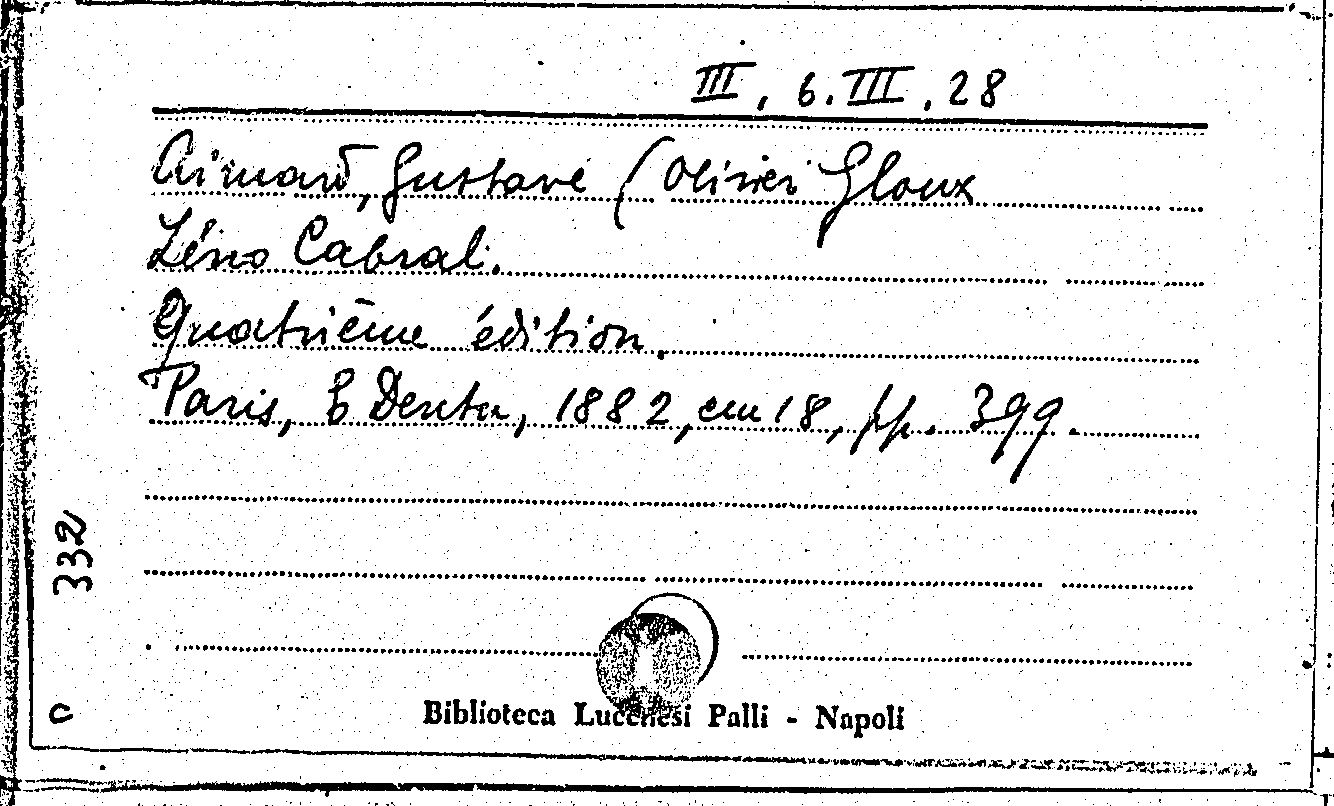 III. 6. III. 28
Aimard, Gustave (Olivier Gloux
Zéno Cabral.
Quatrième édition.
Paris, E Dentu, 1882, cm 18, pp. 399.
332
c
Biblioteca Lucchesi Palli - Napoli